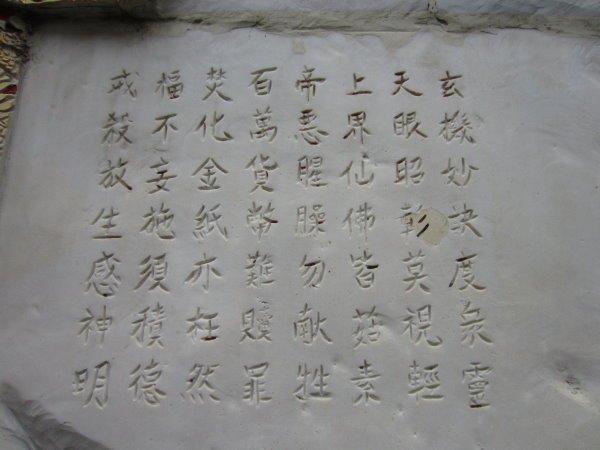 玄機妙訣度眾靈
天眼昭彰莫視輕
上界仙佛皆茹素
帝惡腥臊勿献牲
百萬貨幣難贖罪
焚化金紙亦枉然
福不妄施須積德
戒殺放生感神明